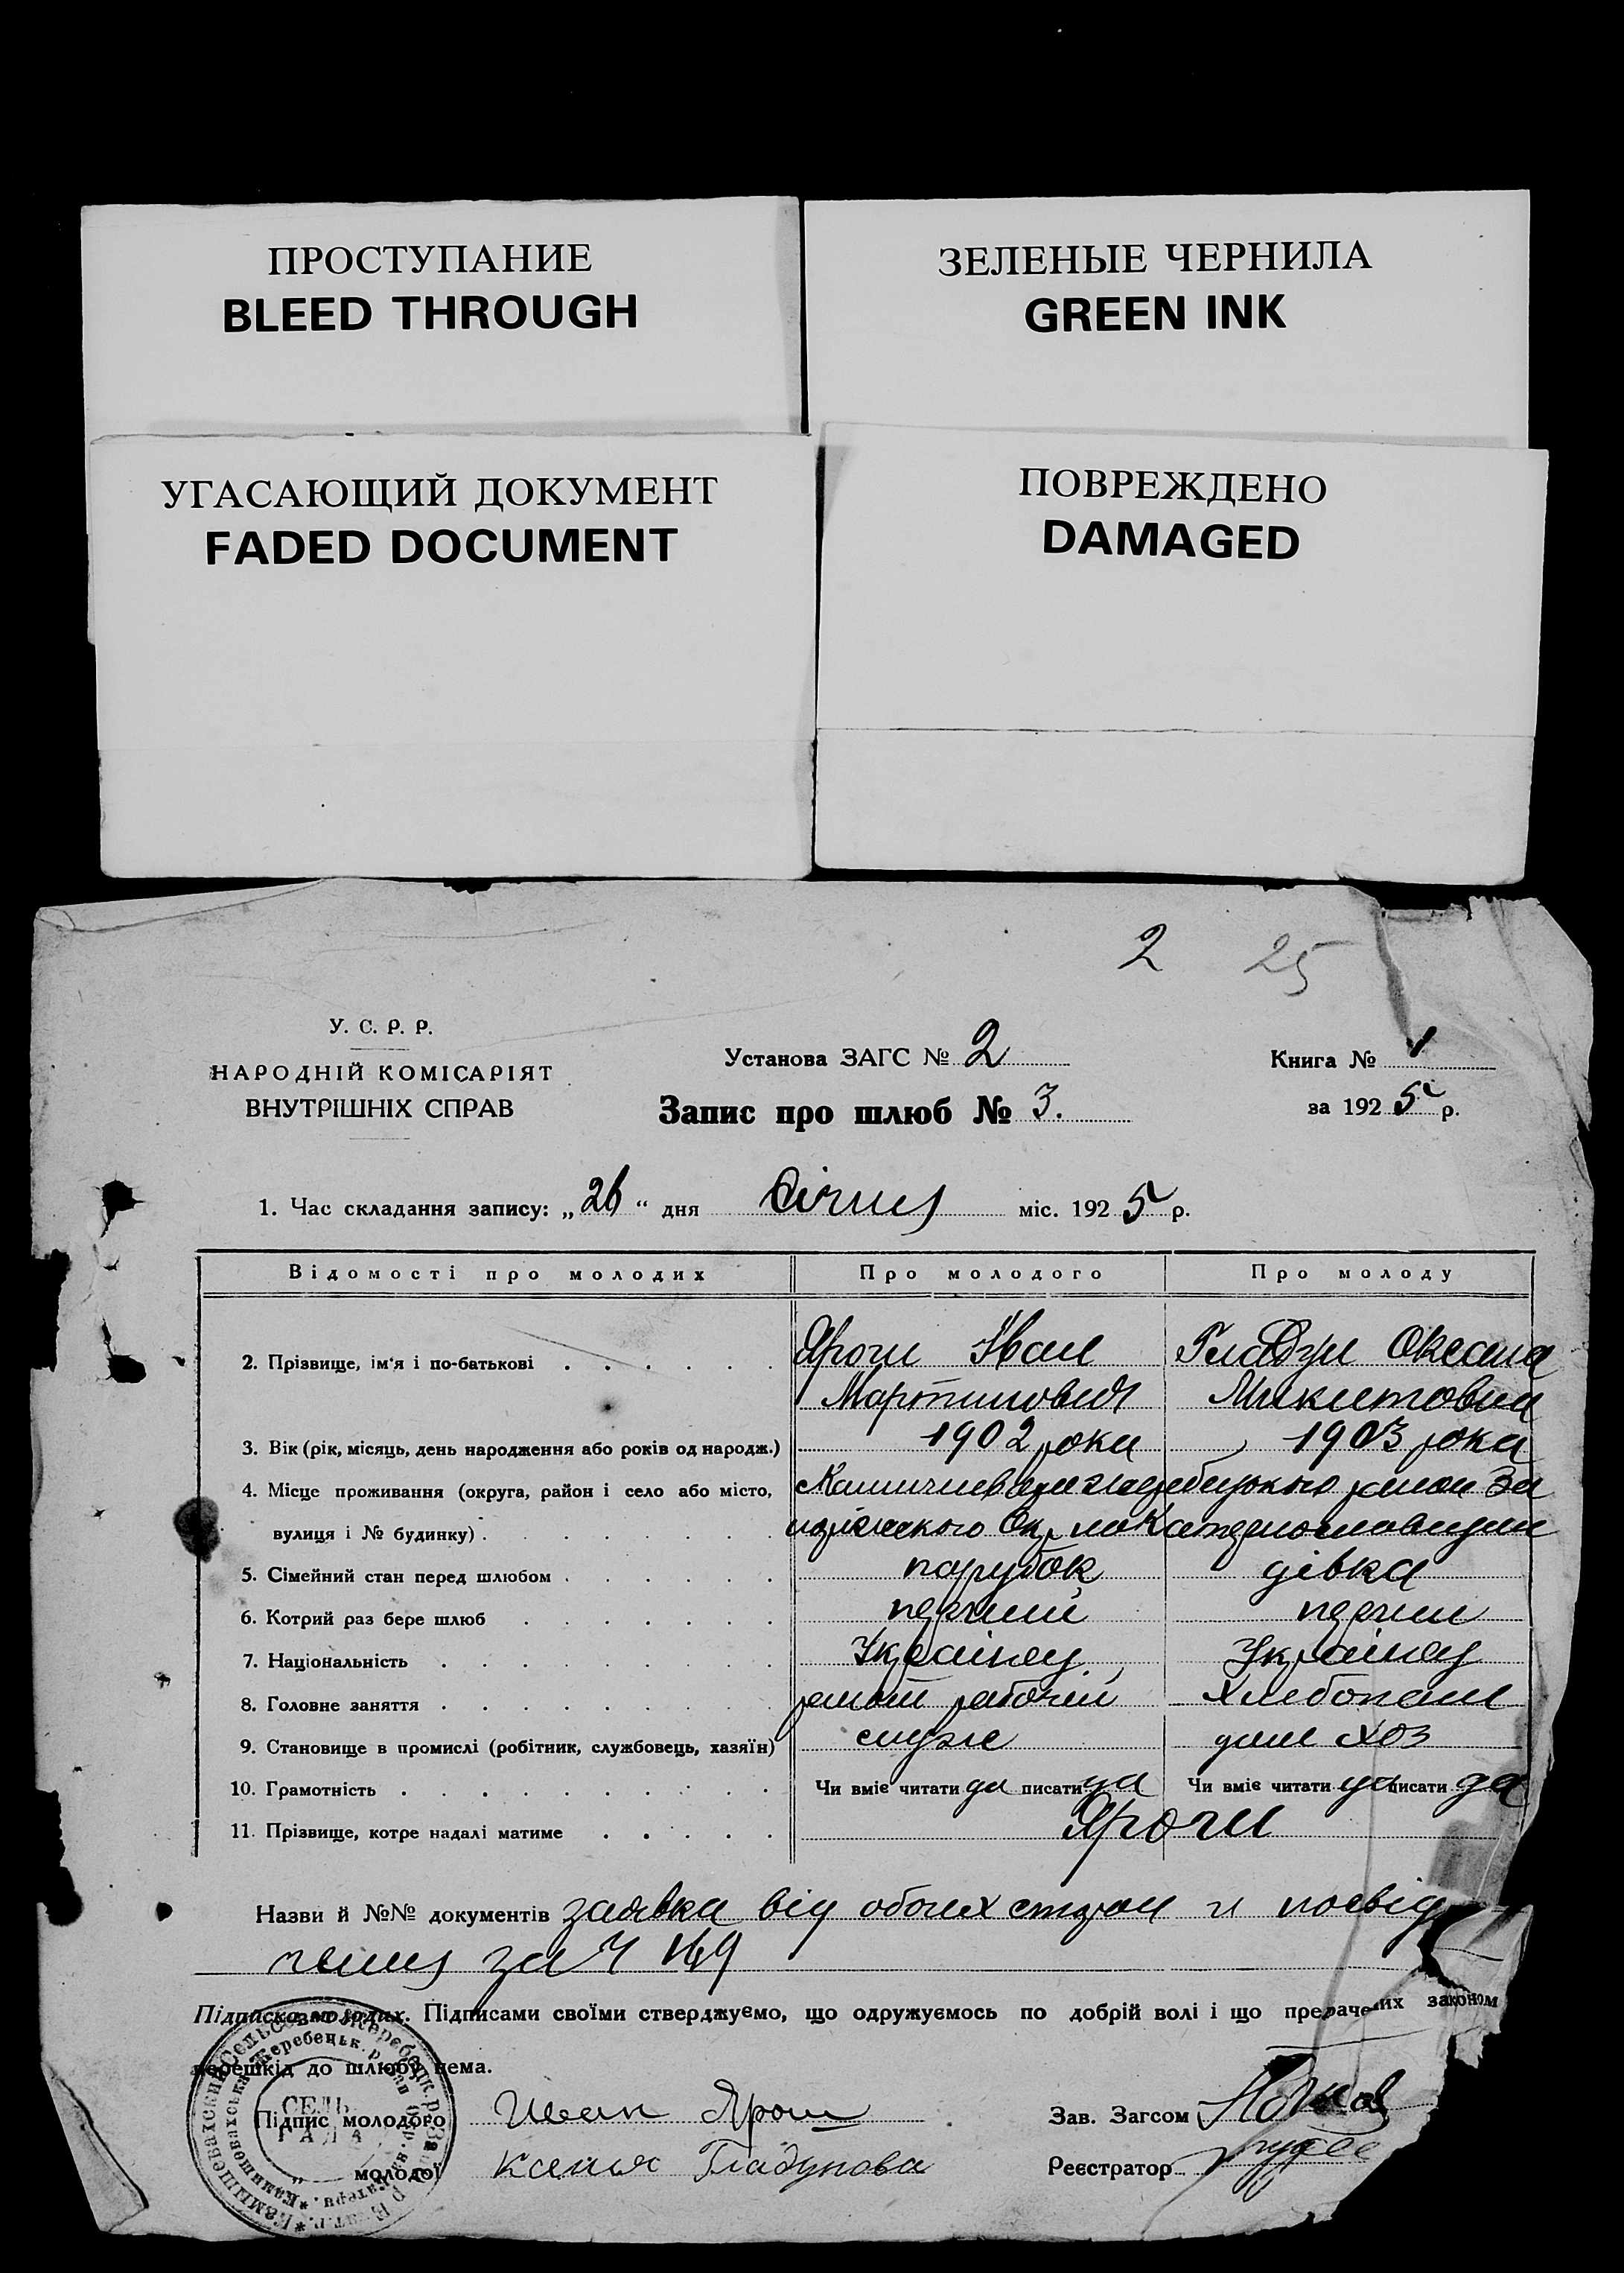 ПРОСТУПАНИЕ
BLEED THROUGH
ЗЕЛЕНЫЕ ЧЕРНИЛА
GREEN INK
УГАСАЮЩИЙ ДОКУМЕНТ
FADED DOCUMENT
ПОВРЕЖДЕНО
DAMAGED
2 25
У. С. Р. Р.
НАРОДНІЙ КОМІСАРІЯТ
ВНУТРІШНІХ СПРАВ
Установа ЗАГС № 2
Запис про шлюб № 3.
Книга № 1
за 1925 р.
1. Час складання запису: „26“ дня Січня міс. 1925 р.
Відомості про молодих Про молодого Про молоду
2. Прізвище, ім'я і по-батькові Ярош Иван Гладун Оксана
Мартинович Микитовна
3. Вік (рік, місяць, день народження або років од народж.) 1902 рока 1903 рока
4. Місце проживання (округа, район і село або місто,
вулиця і № будинку)
5. Сімейний стан перед шлюбом парубок дівка
6. Котрий раз бере шлюб перший перший
7. Національність Українец Українец
8. Головне заняття рабочий хлебопаш
9. Становище в промислі (робітник, службовець, хазяїн) служ дом хоз
10. Грамотність Чи вміє читати да писати да Чи вміє читати да писати да
11. Прізвище, котре надалі матиме Ярош
Назви й №№ документів заявка від обоих сторон и посвід
чення за Ч 149
Підписка молодих. Підписами своїми стверджуємо, що одружуємось по добрій волі і що предбачених законом
перешкід до шлюбу нема.
СЕЛЬ
РАДА
Підпис молодого Иван Ярош
молодої Ксения Гладунова
Зав. Загсом
Реєстратор